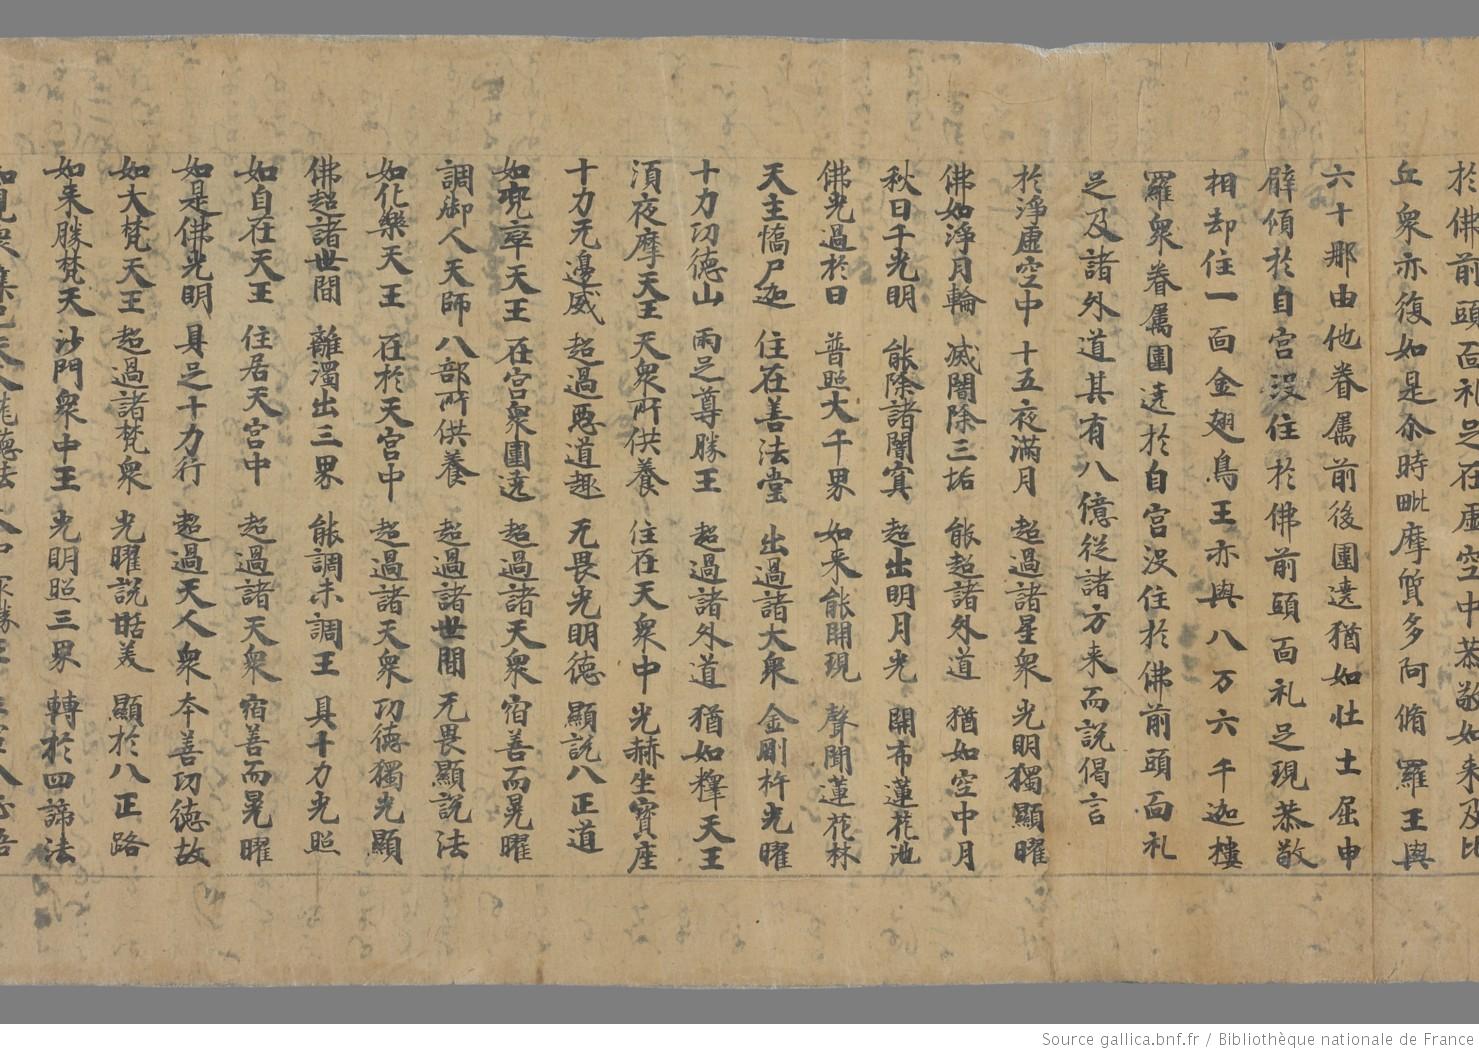 於佛前頭面礼足在虛空中恭敬如来及比
丘衆亦復如是尒時毗摩質多阿脩羅王與
六十那由他眷属前後圍遶猶如壮士屈申
臂傾於自宮没住於佛前頭面礼足現恭敬
相却住一面金翅鳥王亦與八万六千迦樓
羅衆眷属圍遶於自宮没住於佛前頭面礼
足及諸外道其有八億従諸方来而説偈言
於淨虛空中 十五夜滿月 超過諸星衆 光明獨顯曜
佛如淨月輪 滅闇除三垢 能超諸外道 猶如空中月
秋日千光明 能除諸闇冥 超出明月光 開布蓮花池
佛光過於日 普照大千界 如来能開現 聲聞蓮花林
天主憍尸迦 住在善法堂 出過諸大衆 金剛杵光曜
十力功徳山 兩足尊勝王 超過諸外道 猶如釋天王
湏夜摩天王 天衆所供養 住在天衆中 光赫坐寳座
十力无邊威 超過惡道趣 无畏光明徳 顯説八正道
如兜率天王 在宮衆圍遶 超過諸天衆 宿善而晃曜
調御人天師 八部所供養 超過諸世間 无畏顯説法
如化樂天王 在於天宮中 超過諸天衆 功徳獨光顯
佛超諸世間 離濁出三界 能調未調王 具十力光照
如自在天王 住居天宮中 超過諸天衆 宿善而晃曜
如是佛光明 具足十力行 超過天人衆 本善功徳故
如大梵天王 超過諸梵衆 光曜説甜美 顯於八正路
如来勝梵天 沙門衆中王 光明照三界 轉於四諦法
Source gallica.bnf.fr / Bibliothèque nationale de France